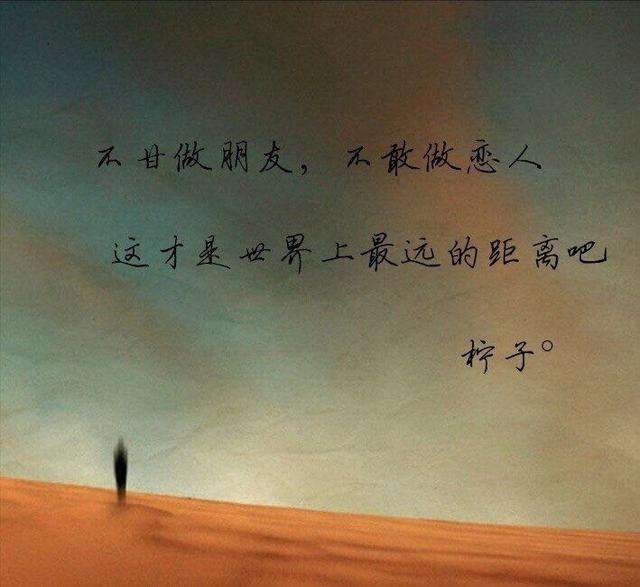 不甘做朋友，不敢做恋人
这才是世界上最远的距离吧
柠子°